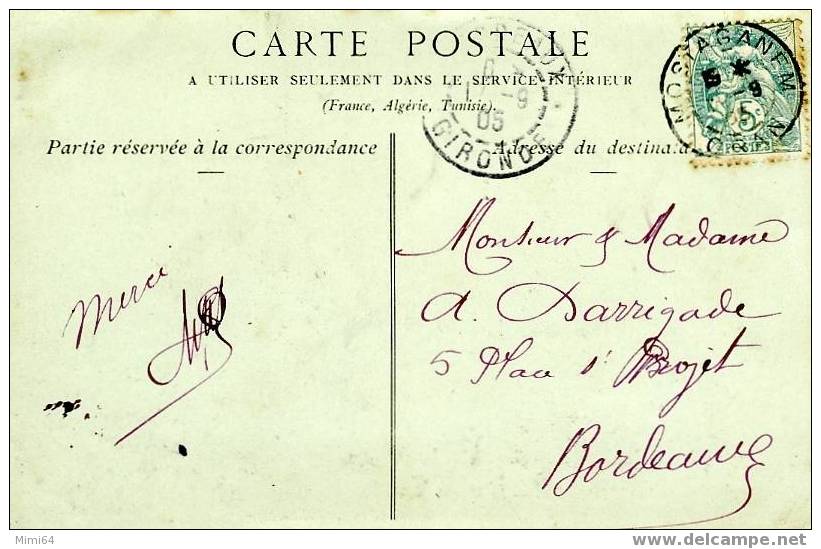 CARTE POSTALE
A UTILISER SEULEMENT DANS LE SERVICE INTÉRIEUR
(France, Algérie, Tunisie).
Partie réservée à la correspondance
Adresse du destinata
MOSTAGANEM
5 *
9
ORAN
5c
POSTES
-9
05
GIRONDE
Monsieur & Madame
A. Darrigade
5 Place
Bordeaux
Merci
Mimi64
delcampe.net